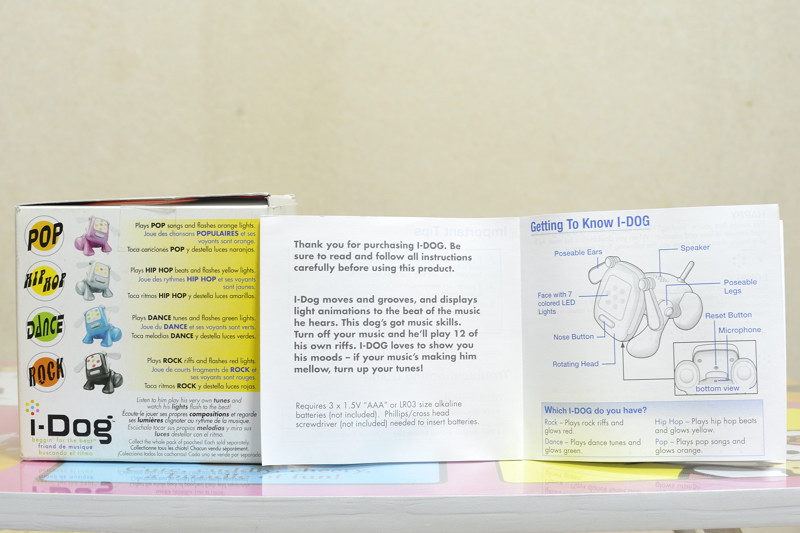 POP
Plays POP songs and flashes orange lights.
Joue des chansons POPULAIRES et ses
voyants sont orange.
Toca canciones POP y destella luces naranjas.
HIP HOP
Plays HIP HOP beats and flashes yellow lights.
Joue des rythmes HIP HOP et ses voyants
sont jaunes.
Toca ritmos HIP HOP y destella luces amarillas.
DANCE
Plays DANCE tunes and flashes green lights.
Joue du DANCE et ses voyants sont verts.
Toca melodías DANCE y destella luces verdes.
ROCK
Plays ROCK riffs and flashes red lights.
Joue de courts fragments de ROCK et
ses voyants sont rouges.
Toca ritmos ROCK y destella luces rojas.
Listen to him play his very own tunes and
watch his lights flash to the beat!
Écoute-le jouer ses propres compositions et regarde
ses lumières clignoter au rythme de la musique.
Escúchalo tocar sus propias melodías y mira sus
luces destellar con el ritmo.
Collect the whole pack of pooches! Each sold separately.
Collectionne tous les chiots! Chacun vendu séparément.
¡Colecciona todos los cachorros! Cada uno se vende por separado.
i-Dog™
beggin' for the beat™
friend de musique
buscando el ritmo
Thank you for purchasing I-DOG. Be
sure to read and follow all instructions
carefully before using this product.
I-Dog moves and grooves, and displays
light animations to the beat of the music
he hears. This dog's got music skills.
Turn off your music and he'll play 12 of
his own riffs. I-DOG loves to show you
his moods – if your music's making him
mellow, turn up your tunes!
Requires 3 x 1.5V "AAA" or LR03 size alkaline
batteries (not included). Phillips/cross head
screwdriver (not included) needed to insert batteries.
Getting To Know I-DOG
Poseable Ears
Speaker
Face with 7
colored LED
Lights
Poseable
Legs
Reset Button
Microphone
Nose Button
Rotating Head
bottom view
Which I-DOG do you have?
Rock – Plays rock riffs and
glows red.
Dance – Plays dance tunes and
glows green.
Hip Hop – Plays hip hop beats
and glows yellow.
Pop – Plays pop songs and
glows orange.